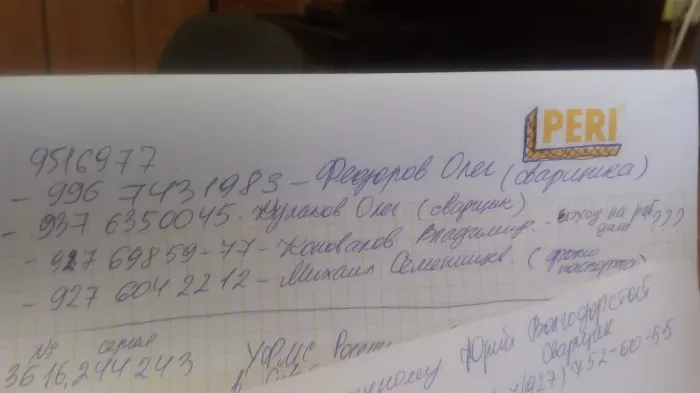 PERI
9516977
- 996 7431983 - Федоров Олег (сварщика)
- 937 6350045. Кулаков Олег (сварщик)
- 927 69859-77 - Коновалов Владимир. - выход на раб ???
- 927 604 2212 - Михаил Семенищев. (фото
паспорта)
№ серия
3616,244243 УФМС
Юрий
сварщик
(927) 752-60-55